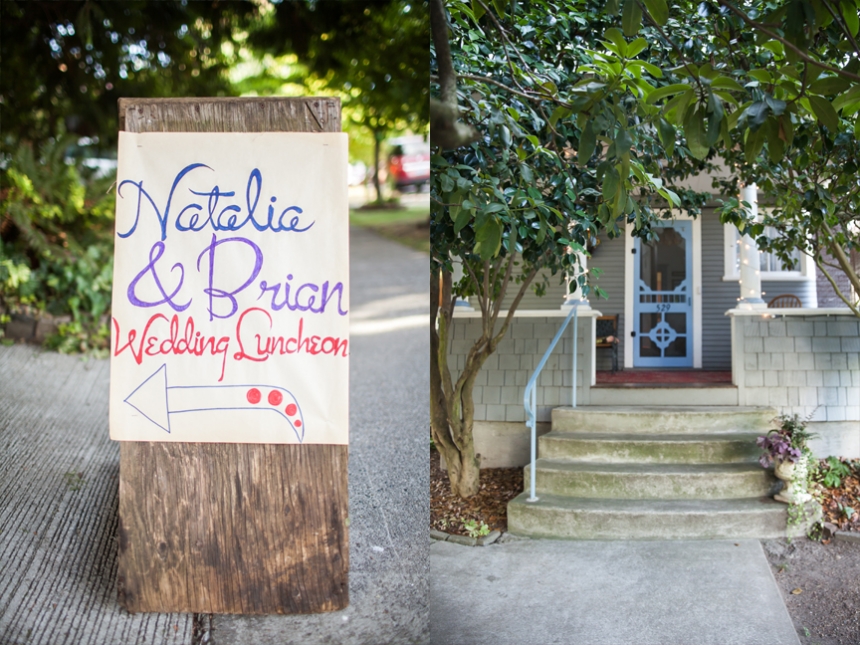 Natalia
& Brian
Wedding Luncheon
529